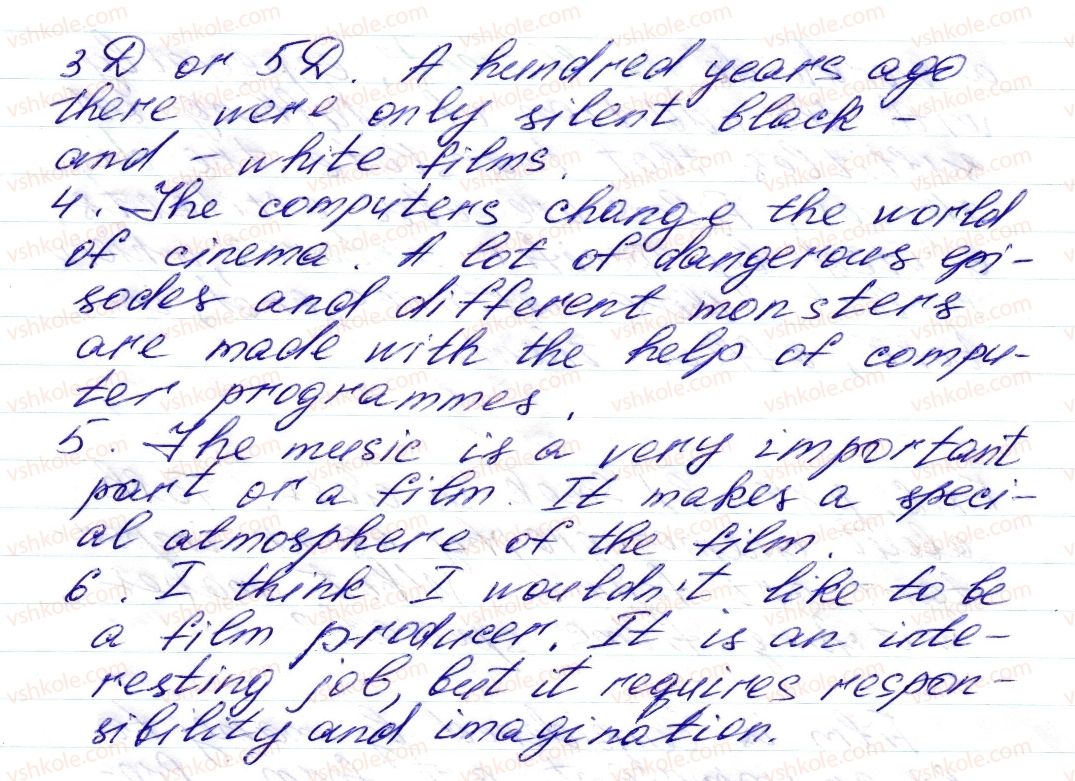 3D or 5D. A hundred years ago
there were only silent black -
and - white films.
4. The computers change the world
of cinema. A lot of dangerous epi-
sodes and different monsters
are made with the help of compu-
ter programmes.
5. The music is a very important
part or a film. It makes a speci-
al atmosphere of the film.
6. I think I wouldn't like to be
a film producer. It is an inte-
resting job, but it requires respon-
sibility and imagination.